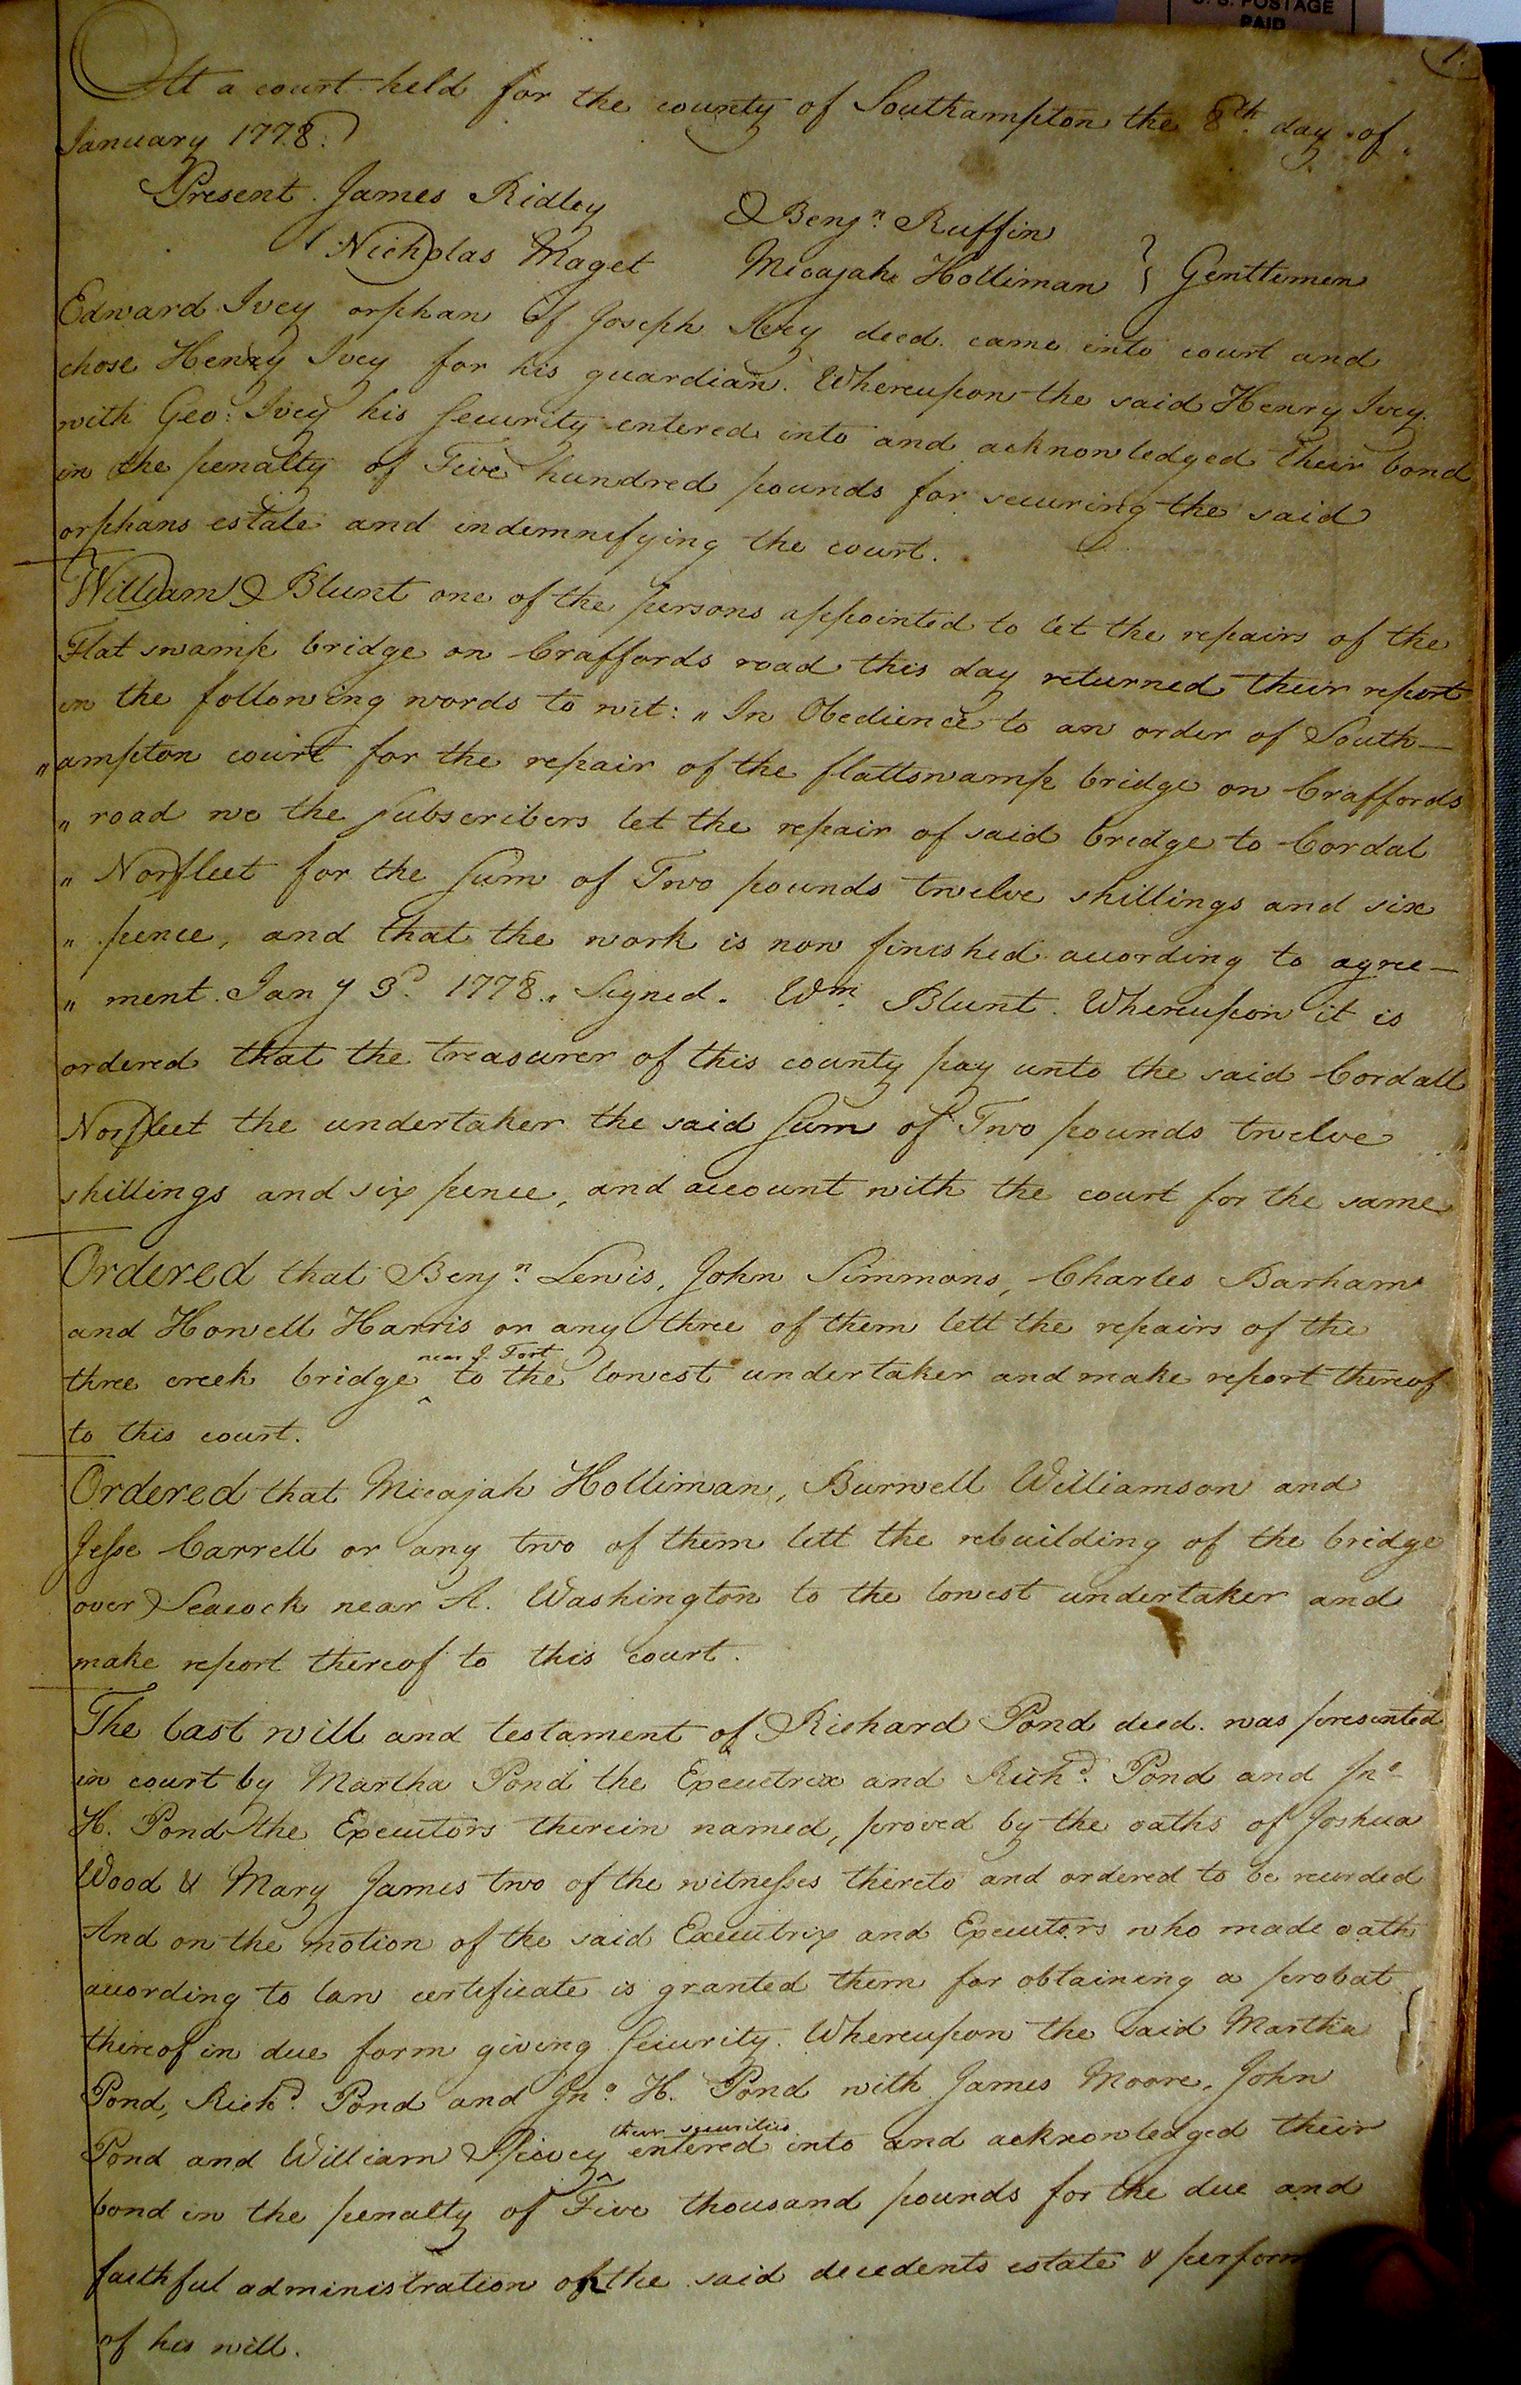 U. S. POSTAGE
PAID
1.
At a court held for the county of Southampton the 8th day of
January 1778.
Present. James Ridley Benjn. Ruffin
Nicholas Maget Micajah Holliman } Genttimen
Edward Ivey orphan of Joseph Ivey decd. came into court and
chose Henry Ivey for his guardian. Whereupon the said Henry Ivey
with Geo: Ivey his Security entered into and acknowledged their bond
in the penalty of Five hundred pounds for securing the said
orphans estate and indemnifying the court.
William Blunt one of the persons appointed to let the repairs of the
Flat swamp bridge on Craffords road this day returned their report
in the following words to wit: „ In Obedience to an order of South-
„ ampton court for the repair of the flattswamp bridge on Craffords
„ road we the Subscribers let the repair of said bredge to Cordal
„ Norfleet for the Sum of Two pounds twelve shillings and six
„ pence, and that the work is now finished according to agree-
„ ment. Jany 3d. 1778„ Signed. Wm. Blunt. Whereupon it is
ordered that the treasurer of this county pay unto the said Cordall
Norfleet the undertaker the said Sum of Two pounds twelve
shillings and six pence, and account with the court for the same
Ordered that Benjn. Lewis, John Simmons, Charles Barham
and Howell Harris or any three of them lett the repairs of the
near J. Fort
three creek bridge ^ to the lowest undertaker and make report thereof
to this court.
Ordered that Micajah Holliman, Burwell Williamson and
Jesse Carrell or any two of them lett the rebuilding of the bridge
over Seacock near A. Washington to the lowest undertaker and
make report thereof to this court.
The last will and testament of Richard Pond decd. was presented
in court by Martha Pond the Executrix and Richd. Pond and Jno.
H. Pond the Executors therein named, proved by the oaths of Joshua
Wood & Mary James two of the witnesses thereto and ordered to be recorded
And on the motion of the said Executrix and Executors who made oath
according to law certificate is granted them for obtaining a probat
thereof in due form giving Security. Whereupon the said Martha
Pond, Richd. Pond and Jno. H. Pond with James Moore, John
their securities
Pond and William Spivey ^ entered into and acknowledged their
bond in the penalty of Five thousand pounds for the due and
faithful administration of the said decedents estate & perform
of his will.